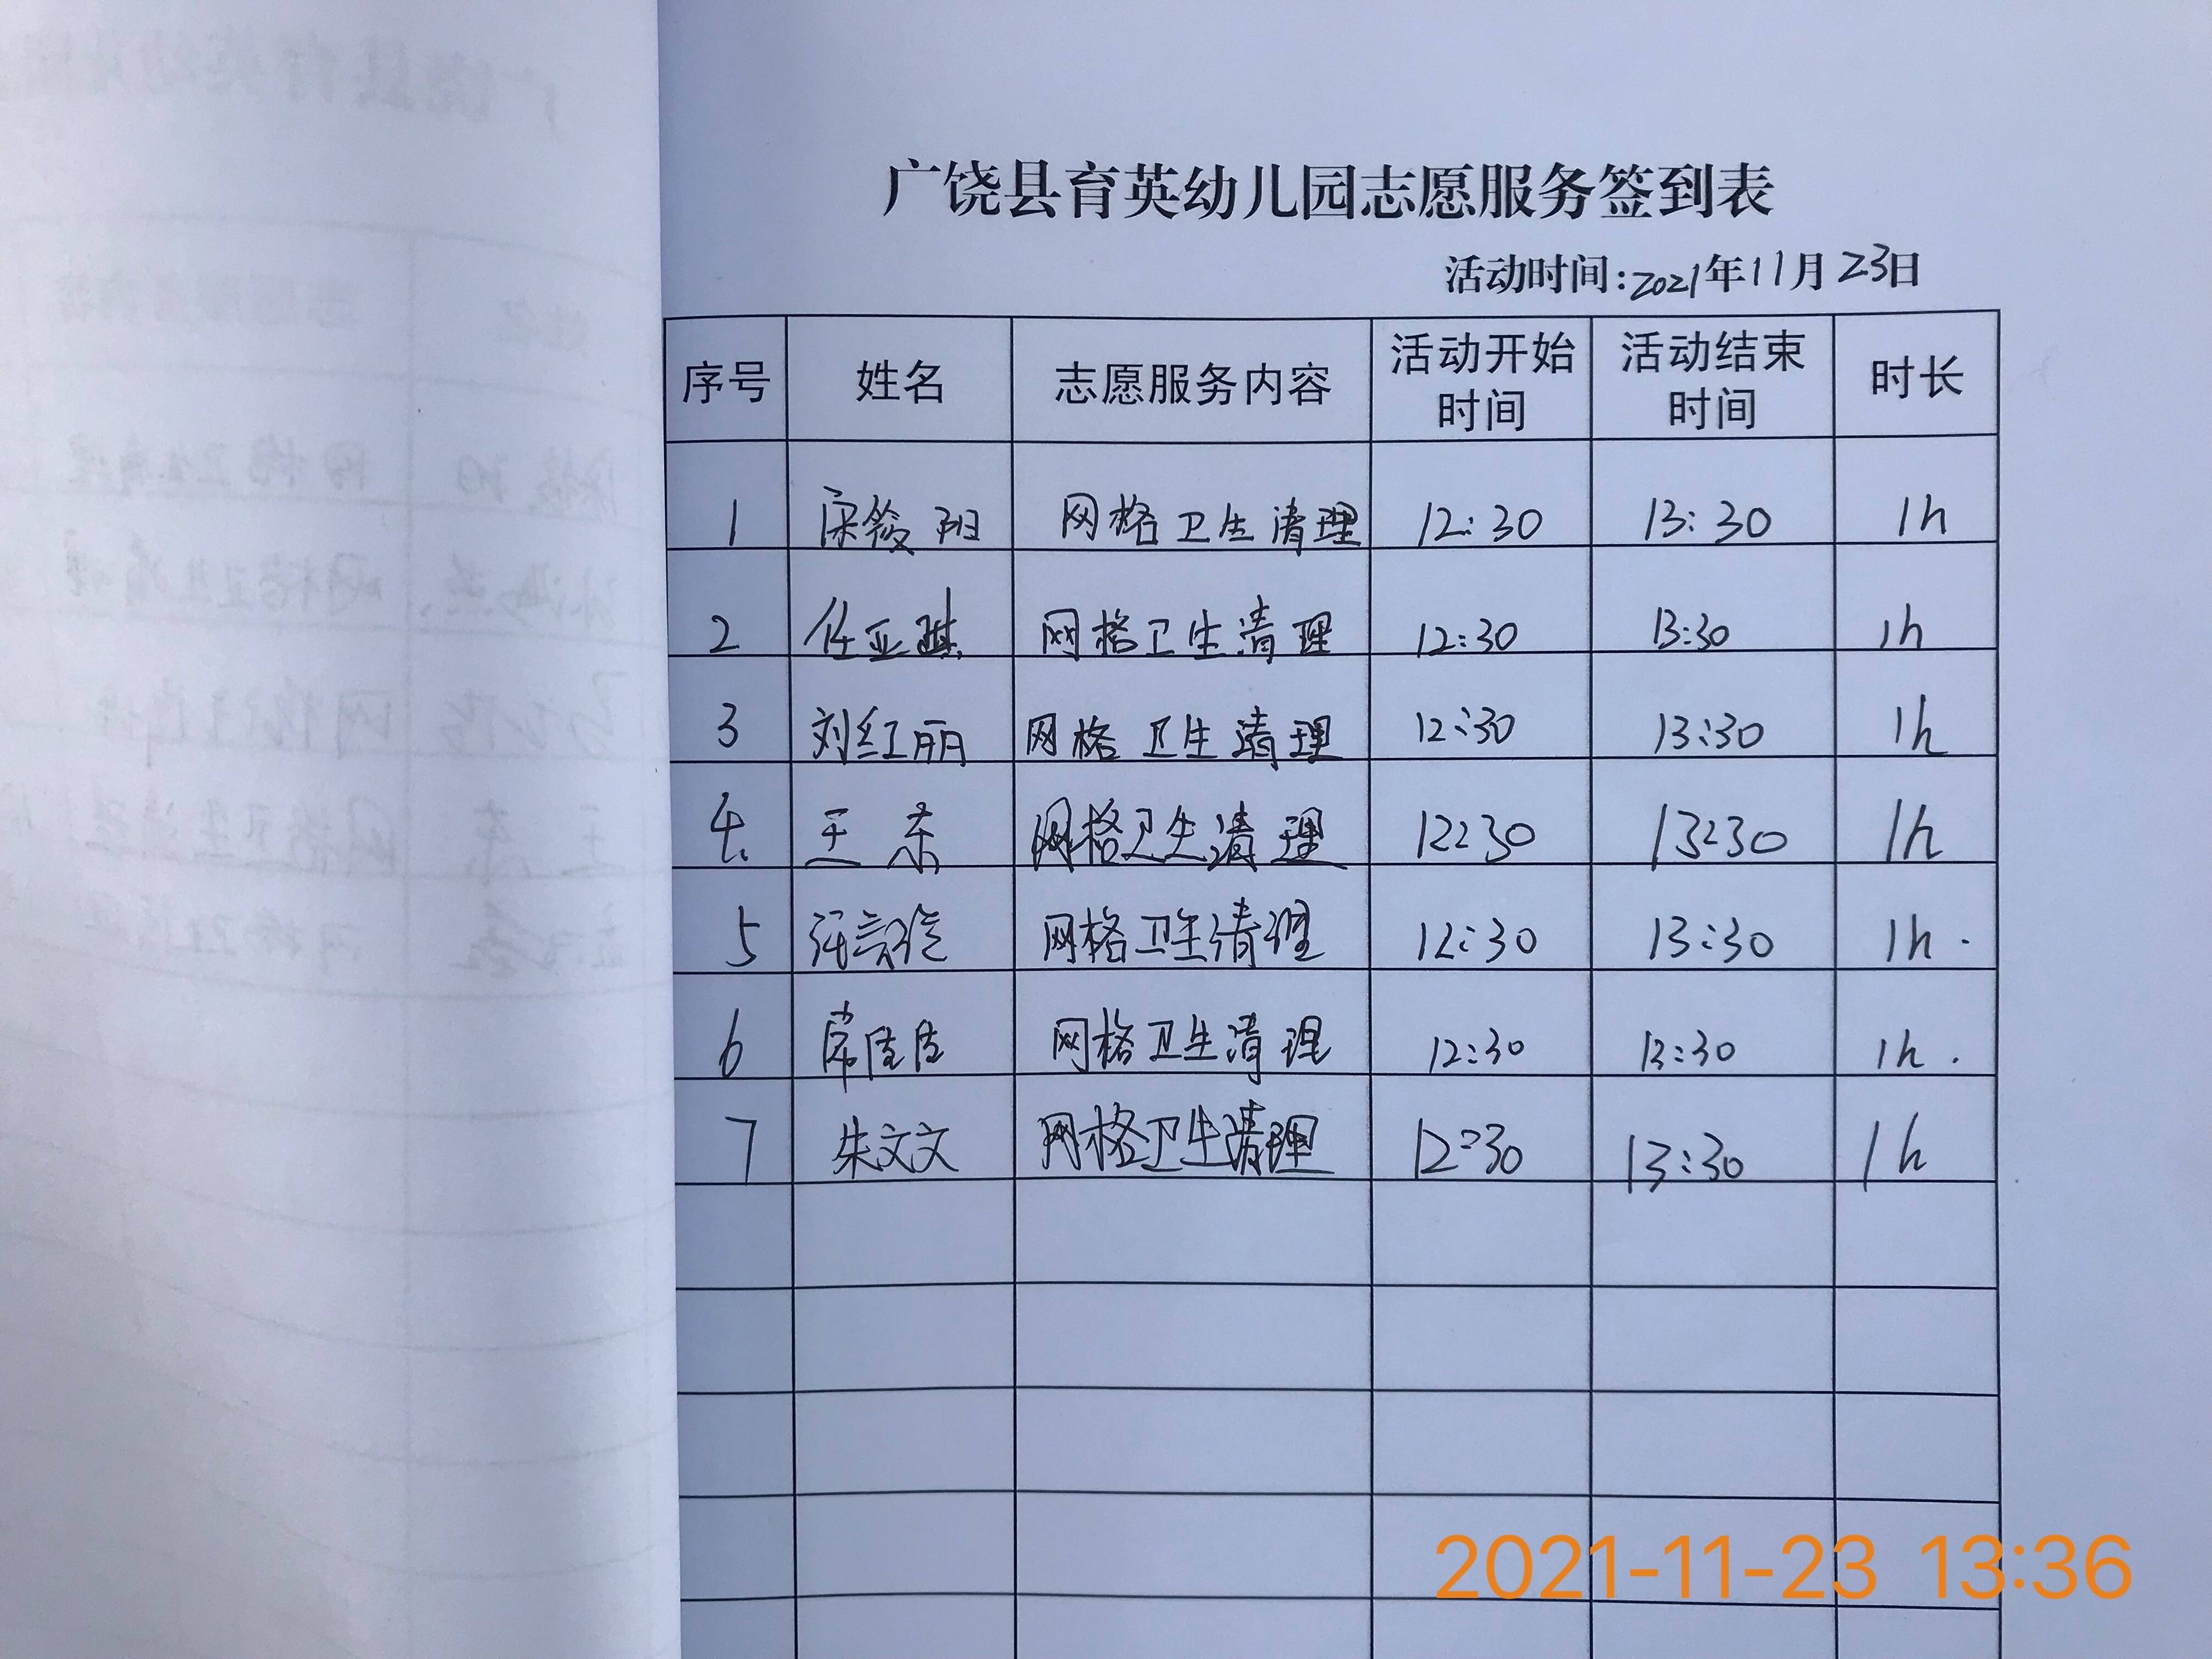 广饶县育英幼儿园志愿服务签到表
活动时间:2021年11月23日
序号 姓名 志愿服务内容 活动开始时间 活动结束时间 时长
1 网格卫生清理 12:30 13:30 1h
2 任亚琪 网格卫生清理 12:30 13:30 1h
3 刘红丽 网格卫生清理 12:30 13:30 1h
4. 王 网格卫生清理 12:30 13:30 1h
5 网格卫生清理 12:30 13:30 1h.
6 常佳佳 网格卫生清理 12:30 13:30 1h.
7 朱文文 网格卫生清理 12:30 13:30 1h
2021-11-23 13:36